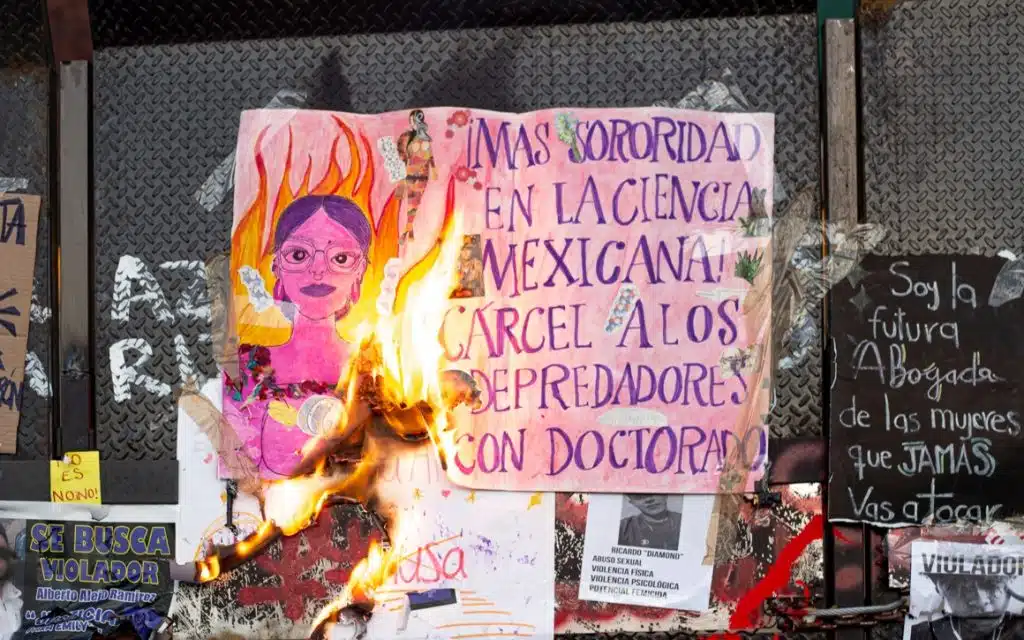 ¡MAS SORORIDAD
EN LA CIENCIA
MEXICANA!
CÁRCEL A LOS
DEPREDADORES
CON DOCTORADO!
Soy la
futura
Abogada
de las mujeres
que JAMÁS
Vas a tocar
NO
ES
NO!NO!
SE BUSCA
VIOLADOR
Alberto Alejo Ramírez
EMILY
usa
RICARDO "DIAMOND"
ABUSO SEXUAL
VIOLENCIA FÍSICA
VIOLENCIA PSICOLÓGICA
POTENCIAL FEMICIDA
VIOLADOR